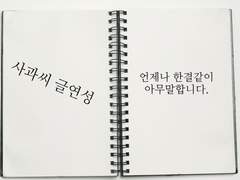 사과씨 글연성
언제나 한결같이
아무말합니다.